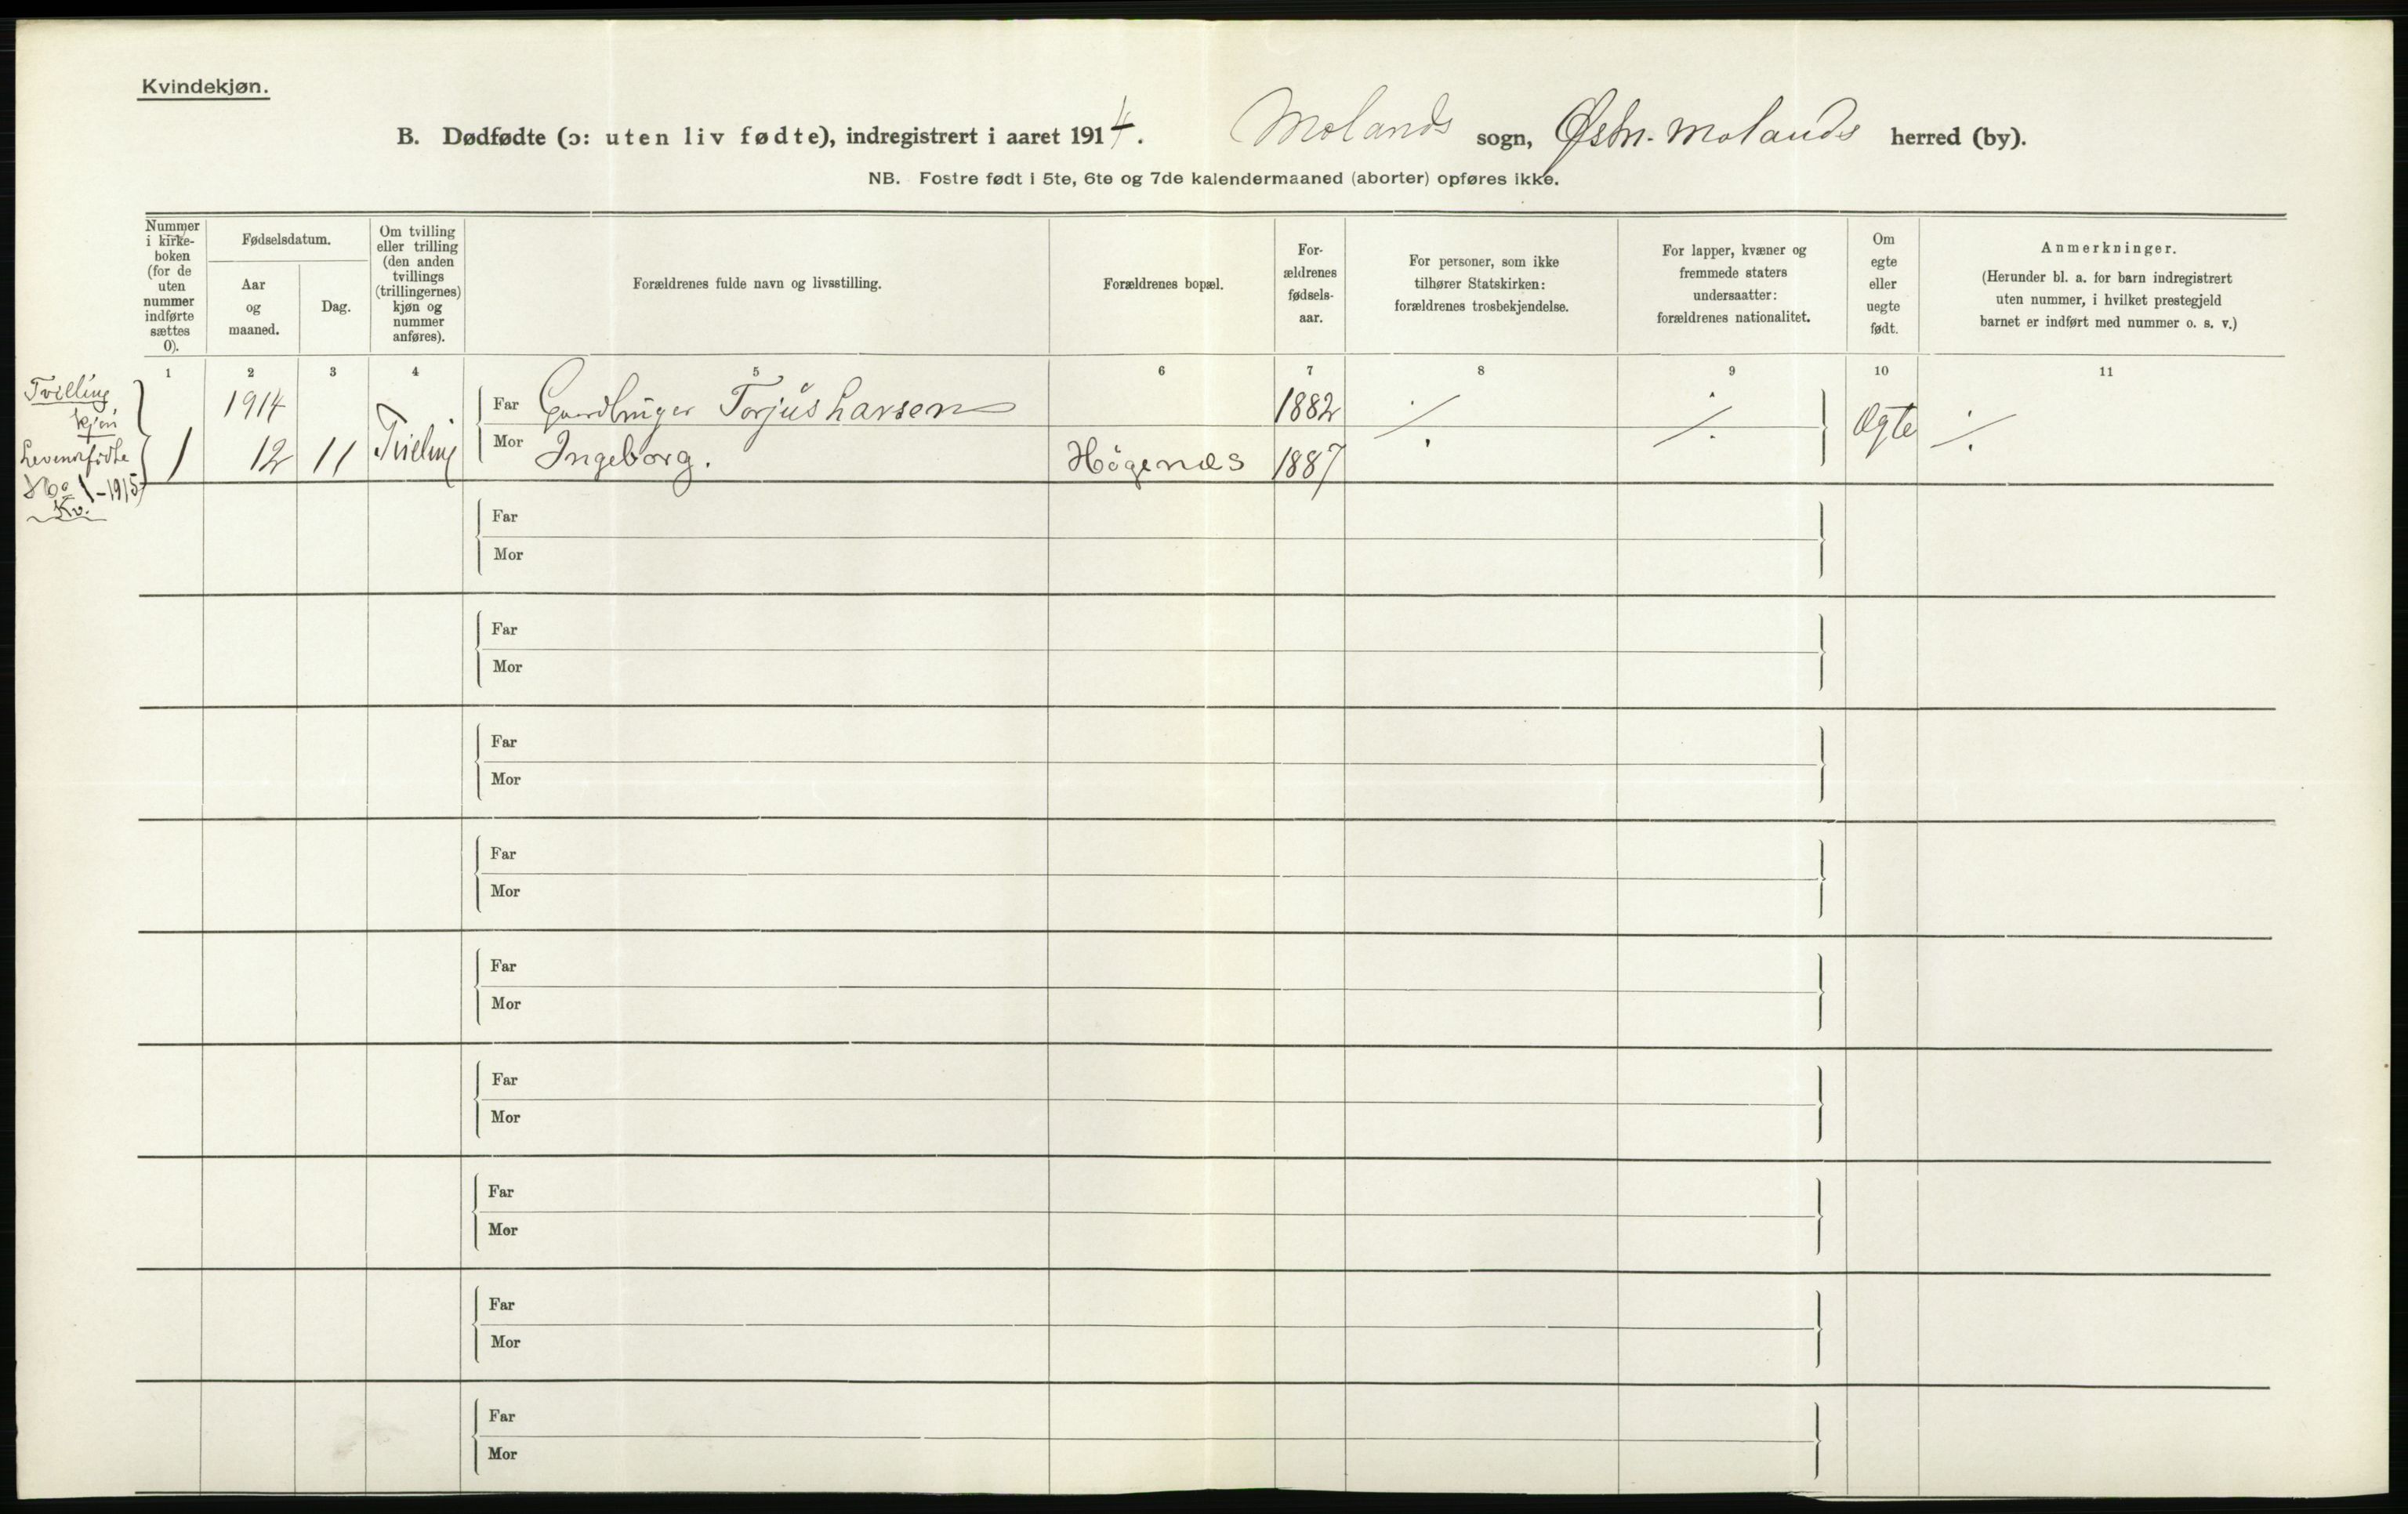 Kvindekjøn.
B. Dødfødte (ɔ: uten liv fødte), indregistrert i aaret 1914. Molands sogn, Østre-Molands herred (by).
NB. Fostre født i 5te, 6te og 7de kalendermaaned (aborter) opføres ikke.
Nummer
i kirke-
boken
(for de
uten
nummer
indførte
sættes
0).
Fødselsdatum.
Aar
og
maaned.
Dag.
Om tvilling
eller trilling
(den anden
tvillings
(trillingernes)
kjøn og
nummer
anføres).
Forældrenes fulde navn og livsstilling.
Forældrenes bopæl.
For-
ældrenes
fødsels-
aar.
For personer, som ikke
tilhører Statskirken:
forældrenes trosbekjendelse.
For lapper, kvæner og
fremmede staters
undersaatter:
forældrenes nationalitet.
Om
egte
eller
uegte
født.
Anmerkninger.
(Herunder bl. a. for barn indregistrert
uten nummer, i hvilket prestegjeld
barnet er indført med nummer o. s. v.)
1 2 3 4 5 6 7 8 9 10 11
Tvilling
kjøn
Levendefødte
No 1 - 1915
Kv.
1914
Far Gaardbruger Torjus Larsen 1882 ./. ./.
1 12 11 Tvilling Mor Ingeborg. Høgenæs 1887 Ægte ./.
Far
Mor
Far
Mor
Far
Mor
Far
Mor
Far
Mor
Far
Mor
Far
Mor
Far
Mor
Far
Mor